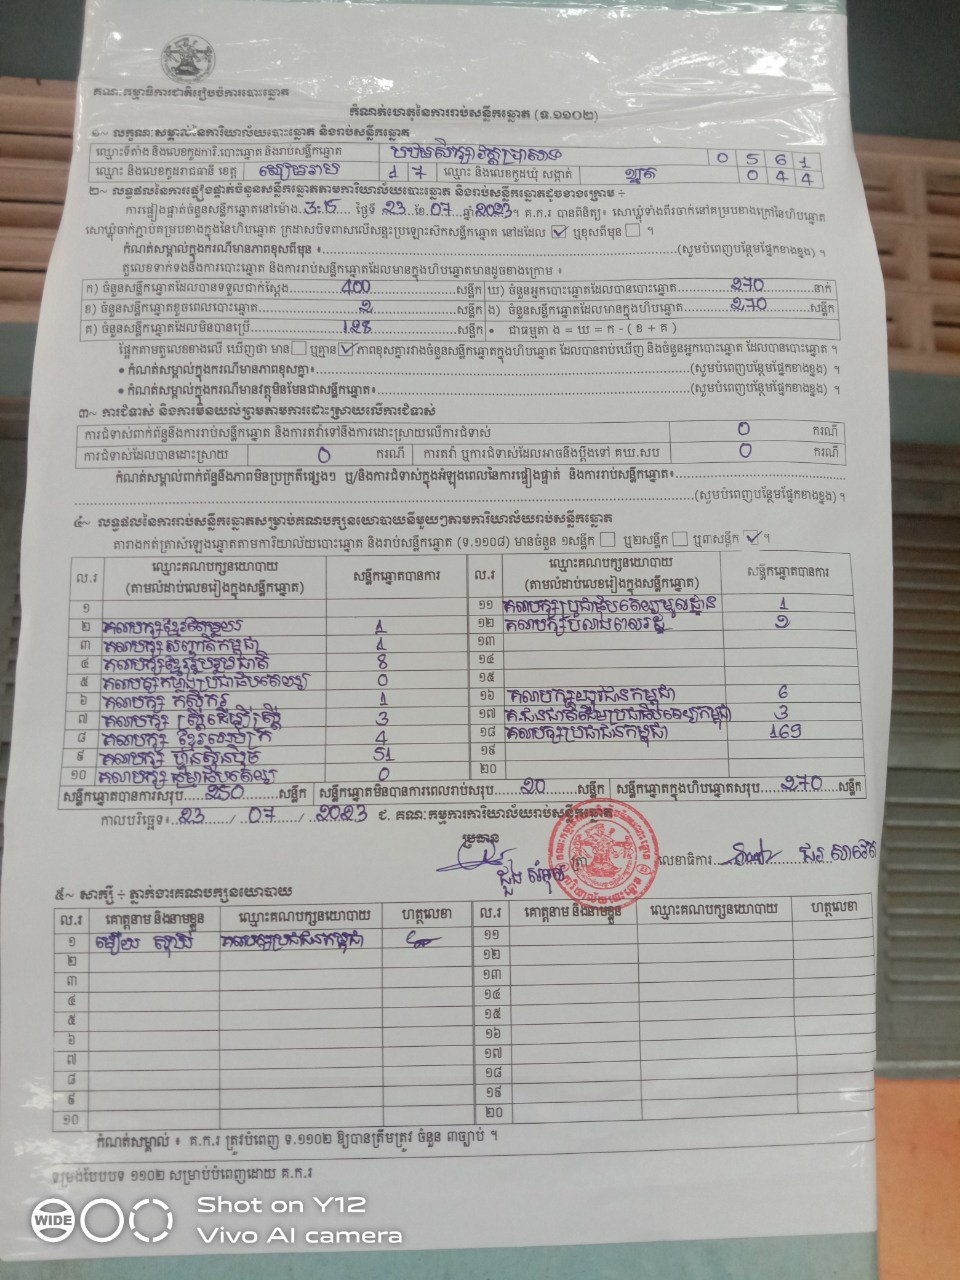 គណៈកម្មាធិការជាតិរៀបចំការបោះឆ្នោត
កំណត់ហេតុនៃការរាប់សន្លឹកឆ្នោត (ទ.១១០២)
១~ លក្ខណៈសម្គាល់នៃការិយាល័យបោះឆ្នោត និងរាប់សន្លឹកឆ្នោត
ឈ្មោះទីតាំង និងលេខកូដការិ.បោះឆ្នោត និងរាប់សន្លឹកឆ្នោត 0 5 6 1
ឈ្មោះ និងលេខកូដរាជធានី ខេត្ត សៀមរាប 1 7 ឈ្មោះ និងលេខកូដឃុំ សង្កាត់ 0 4 4
២~ លទ្ធផលនៃការផ្ទៀងផ្ទាត់ចំនួនសន្លឹកឆ្នោតតាមការិយាល័យបោះឆ្នោត និងរាប់សន្លឹកឆ្នោតដូចខាងក្រោម ÷
ការផ្ទៀងផ្ទាត់ចំនួនសន្លឹកឆ្នោតនៅម៉ោង 3:15 ថ្ងៃទី 23 ខែ 07 ឆ្នាំ 2023 ។ គ.ក.រ បានពិនិត្យ៖ សោឃ្លុំទាំងពីរចាក់នៅគម្របខាងក្រៅនៃហិបឆ្នោត
សោឃ្លុំចាក់ភ្ជាប់គម្របខាងក្នុងនៃហិបឆ្នោត ក្រដាសបិទពាសលើសន្ទះប្រឡោះស៊កសន្លឹកឆ្នោត នៅដដែល ☑ ឬខុសពីមុន ☐ ។
កំណត់សម្គាល់ក្នុងករណីមានភាពខុសពីមុន ៖ (សូមបំពេញបន្ថែមផ្នែកខាងខ្នង) ។
តួលេខទាក់ទងនឹងការបោះឆ្នោត និងការរាប់សន្លឹកឆ្នោតដែលមានក្នុងហិបឆ្នោតមានដូចខាងក្រោម ៖
ក) ចំនួនសន្លឹកឆ្នោតដែលបានទទួលជាក់ស្តែង 400 សន្លឹក ឃ) ចំនួនអ្នកបោះឆ្នោតដែលបានបោះឆ្នោត 270 នាក់
ខ) ចំនួនសន្លឹកឆ្នោតខូចពេលបោះឆ្នោត 2 សន្លឹក ង) ចំនួនសន្លឹកឆ្នោតដែលមានក្នុងហិបឆ្នោត 270 សន្លឹក
គ) ចំនួនសន្លឹកឆ្នោតដែលមិនបានប្រើ 128 សន្លឹក • ជាធម្មតា ង = ឃ = ក - ( ខ + គ )
ផ្អែកតាមតួលេខខាងលើ ឃើញថា មាន ☐ ឬគ្មាន ☑ ភាពខុសគ្នារវាងចំនួនសន្លឹកឆ្នោតក្នុងហិបឆ្នោត ដែលបានរាប់ឃើញ និងចំនួនអ្នកបោះឆ្នោត ដែលបានបោះឆ្នោត ។
• កំណត់សម្គាល់ក្នុងករណីមានភាពខុសគ្នា៖ (សូមបំពេញបន្ថែមផ្នែកខាងខ្នង) ។
• កំណត់សម្គាល់ក្នុងករណីមានវត្ថុមិនមែនជាសន្លឹកឆ្នោត៖ (សូមបំពេញបន្ថែមផ្នែកខាងខ្នង) ។
៣~ ការជំទាស់ និងការមិនយល់ព្រមតាមការដោះស្រាយលើការជំទាស់
ការជំទាស់ពាក់ព័ន្ធនឹងការរាប់សន្លឹកឆ្នោត និងការតវ៉ាទៅនឹងការដោះស្រាយលើការជំទាស់ 0 ករណី
ការជំទាស់ដែលបានដោះស្រាយ 0 ករណី ការតវ៉ា ឬការជំទាស់ដែលអាចនឹងប្តឹងទៅ គឃ.សប 0 ករណី
កំណត់សម្គាល់ពាក់ព័ន្ធនឹងភាពមិនប្រក្រតីផ្សេងៗ ឬ/និងការជំទាស់ក្នុងអំឡុងពេលនៃការផ្ទៀងផ្ទាត់ និងការរាប់សន្លឹកឆ្នោត៖
(សូមបំពេញបន្ថែមផ្នែកខាងខ្នង) ។
៤~ លទ្ធផលនៃការរាប់សន្លឹកឆ្នោតសម្រាប់គណបក្សនយោបាយនីមួយៗតាមការិយាល័យរាប់សន្លឹកឆ្នោត
តារាងកត់ត្រាសំឡេងឆ្នោតតាមការិយាល័យបោះឆ្នោត និងរាប់សន្លឹកឆ្នោត (ទ.១១០៨) មានចំនួន ១សន្លឹក ☐ ឬ២សន្លឹក ☐ ឬ៣សន្លឹក ☑ ។
ល.រ ឈ្មោះគណបក្សនយោបាយ (តាមលំដាប់លេខរៀងក្នុងសន្លឹកឆ្នោត) សន្លឹកឆ្នោតបានការ ល.រ ឈ្មោះគណបក្សនយោបាយ (តាមលំដាប់លេខរៀងក្នុងសន្លឹកឆ្នោត) សន្លឹកឆ្នោតបានការ
១ ១១ គណបក្សប្រជាធិបតេយ្យមូលដ្ឋាន 1
២ គណបក្សខ្មែរតែមួយ 1 ១២ គណបក្សបំលាងពលរដ្ឋ
៣ គណបក្សសញ្ជាតិកម្ពុជា 1 ១៣
៤ គណបក្សខ្មែររួបរួមជាតិ 8 ១៤
៥ គណបក្សកម្លាំងប្រជាធិបតេយ្យ 0 ១៥
៦ គណបក្ស កសិករ 1 ១៦ គណបក្សយុវជនកម្ពុជា 6
៧ គណបក្ស ស្រ្តីដើម្បីស្រ្តី 3 ១៧ គ.ជនជាតិដើមប្រជាធិបតេយ្យកម្ពុជា 3
៨ គណបក្ស ខ្មែរអភិរក្ស 4 ១៨ គណបក្សប្រជាជនកម្ពុជា 169
៩ គណបក្ស ហ៊្វុនស៊ិនប៉ិច 51 ១៩
១០ គណបក្ស ធម្មាធិបតេយ្យ 0 ២០
សន្លឹកឆ្នោតបានការសរុប 250 សន្លឹក សន្លឹកឆ្នោតមិនបានការពេលរាប់សរុប 20 សន្លឹក សន្លឹកឆ្នោតក្នុងហិបឆ្នោតសរុប 270 សន្លឹក
កាលបរិច្ឆេទ៖ 23 / 07 / 2023 ជ. គណៈកម្មការការិយាល័យរាប់សន្លឹកឆ្នោត
ប្រធាន
ត្រា លេខាធិការ
៥~ សាក្សី ÷ ភ្នាក់ងារគណបក្សនយោបាយ
ល.រ គោត្តនាម និងនាមខ្លួន ឈ្មោះគណបក្សនយោបាយ ហត្ថលេខា ល.រ គោត្តនាម និងនាមខ្លួន ឈ្មោះគណបក្សនយោបាយ ហត្ថលេខា
១ គណបក្សប្រជាជនកម្ពុជា ១១
២ ១២
៣ ១៣
៤ ១៤
៥ ១៥
៦ ១៦
៧ ១៧
៨ ១៨
៩ ១៩
១០ ២០
កំណត់សម្គាល់ ៖ គ.ក.រ ត្រូវបំពេញ ទ.១១០២ ឱ្យបានត្រឹមត្រូវ ចំនួន ៣ច្បាប់ ។
ទម្រង់បែបបទ ១១០២ សម្រាប់បំពេញដោយ គ.ក.រ
WIDE
Shot on Y12
Vivo AI camera